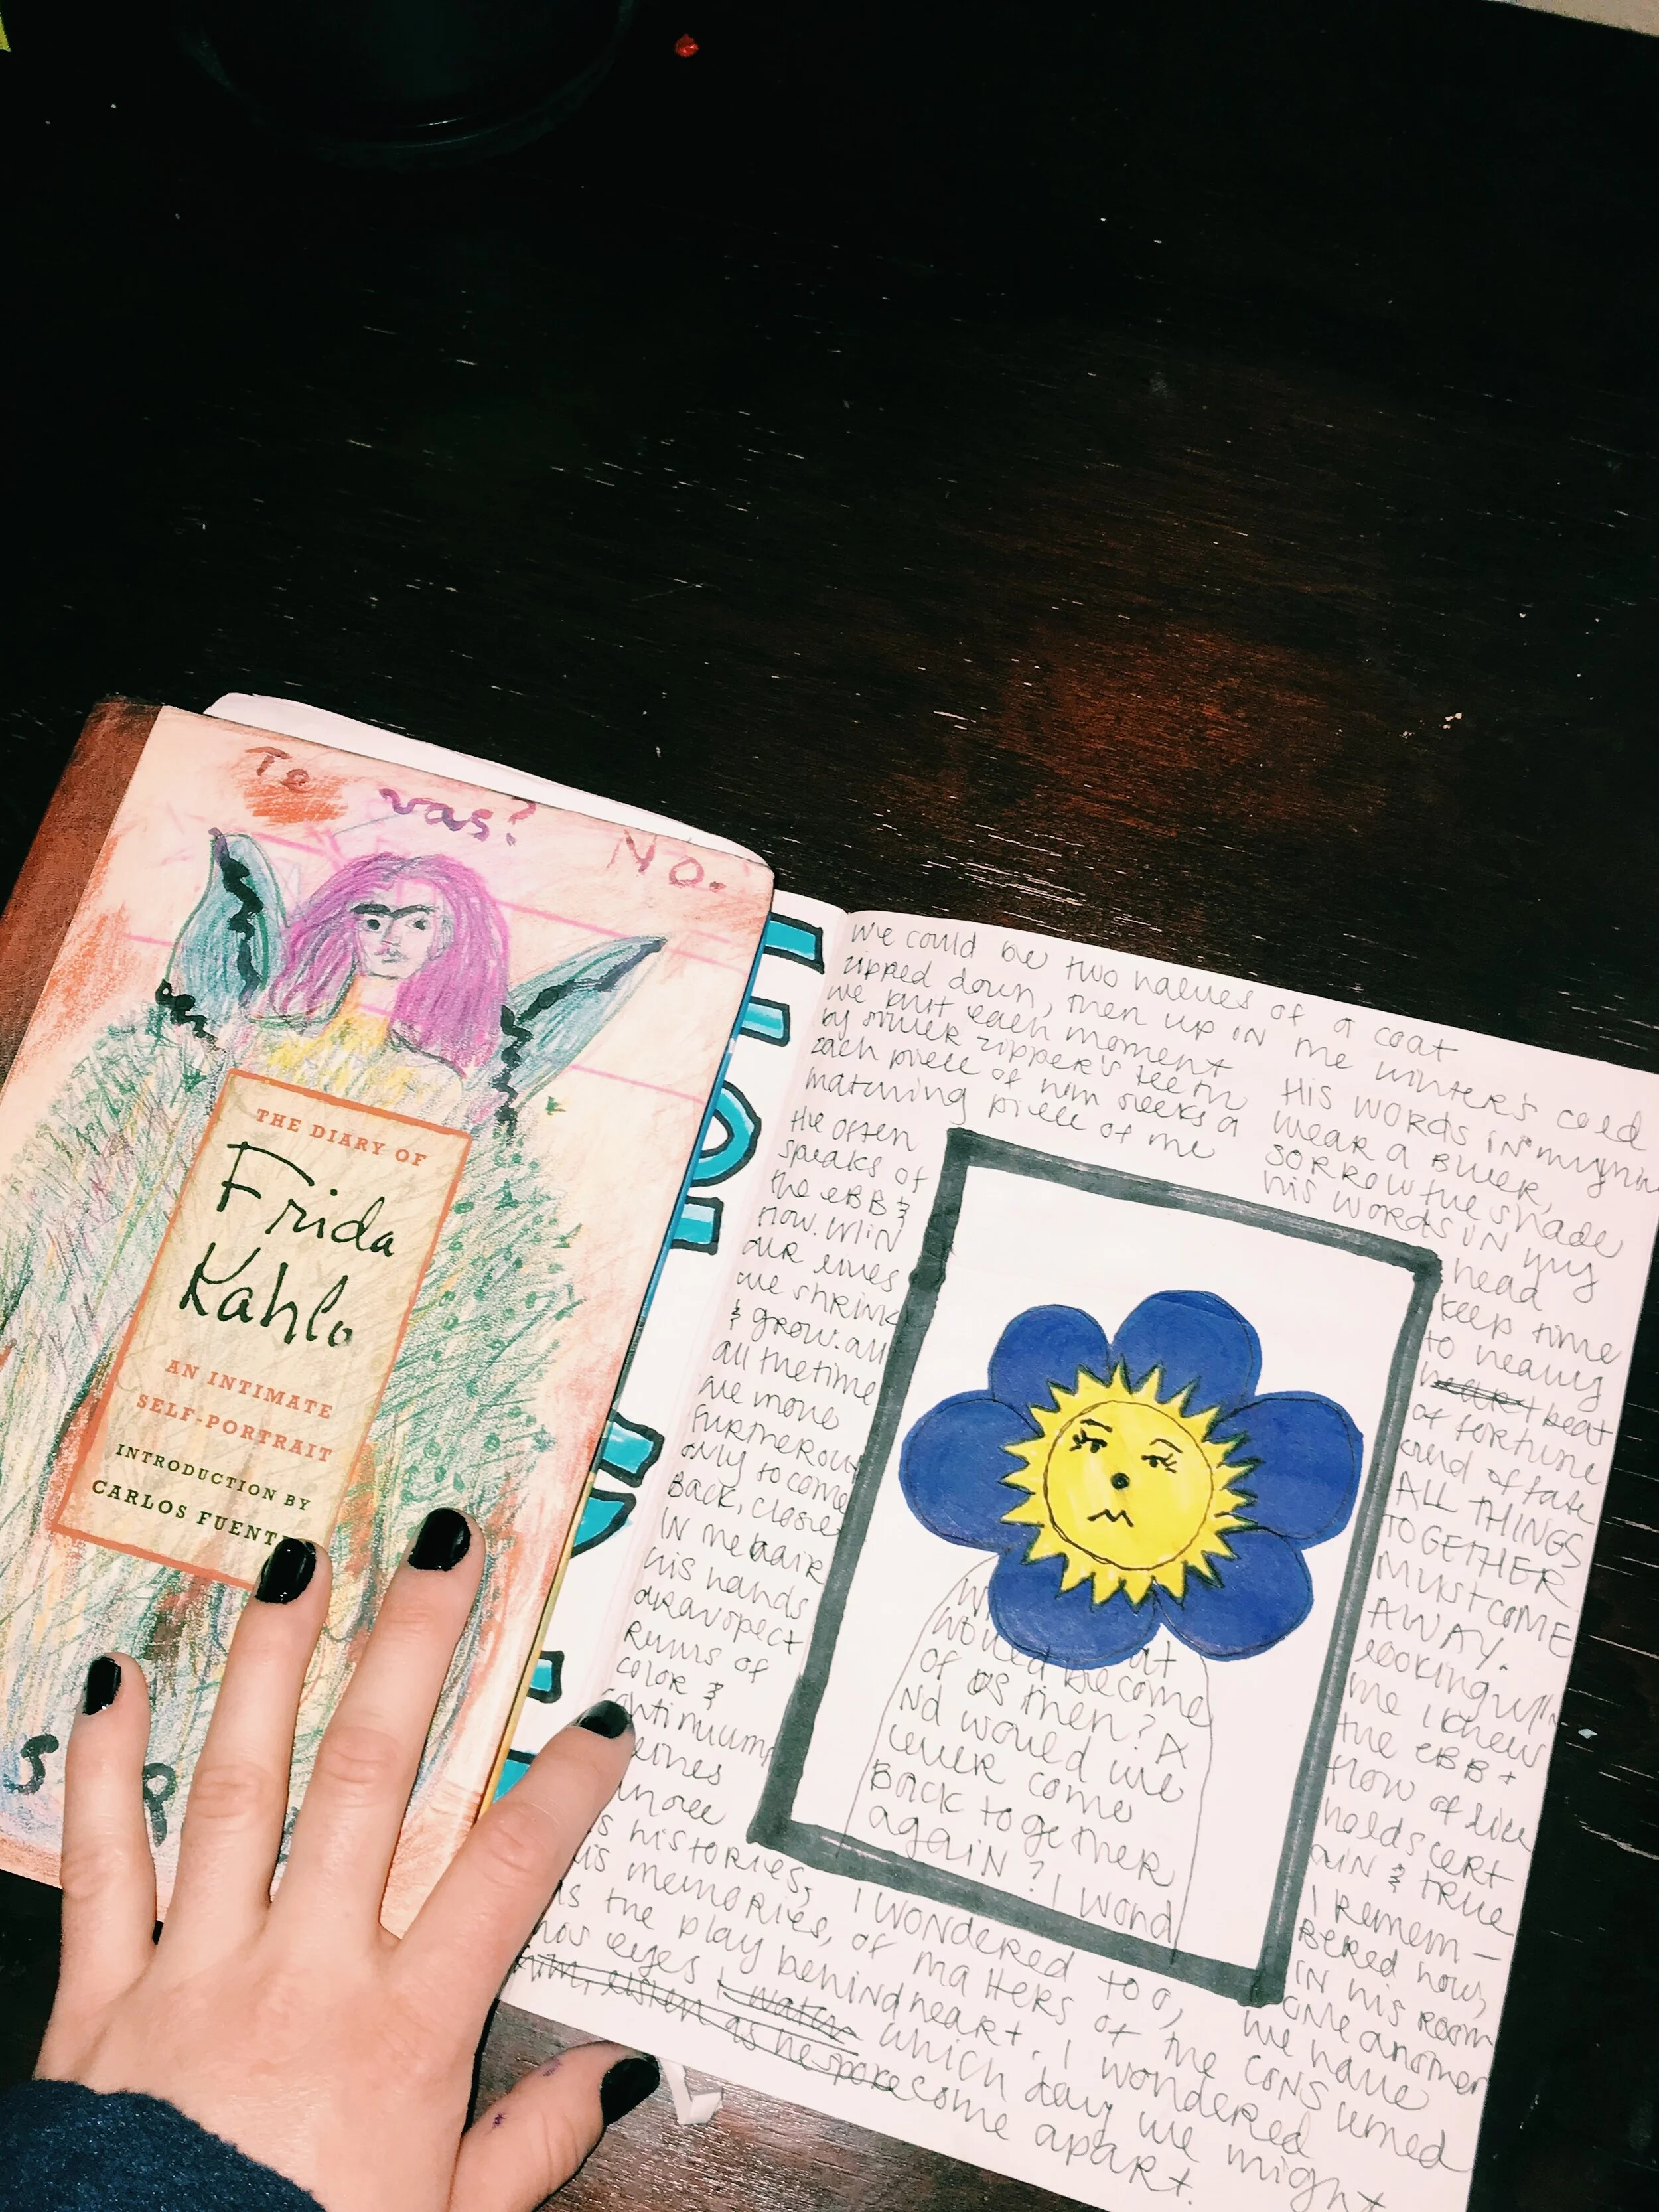 Te vas? No.
THE DIARY OF
Frida
Kahlo
AN INTIMATE
SELF-PORTRAIT
INTRODUCTION BY
CARLOS FUENT
we could be two halves of a coat
zipped down, then up in the winter's cold
we knit each moment
by silver zipper's teeth
each piece of him seeks a
matching piece of me
He often
speaks of
the eBB &
flow. W/iN
our lives
we shrink
& grow. all
all the time
we move
furtherout
only to come
Back, closer
IN the hair
his hands
color &
continuums
his histories,
his memories,
as the play behind
his eyes I watch
him, listen as he spoke
His words in my mind
wear a Bluer,
sorrow the shade
his words in my
head
keep time
to heavy
heart beat
of fortune
and of fate
ALL THINGS
TOGETHER
MUST COME
AWAY.
looking w/in
me I knew
the eBB +
flow of live
holds cert
aiN & true
I Remem-
BeRed how,
IN his room
we have
ome another
CONSUMED
would become
of us then? A
Nd would we
ever come
Back together
again? I wond
I WONDERED too,
of matters of the
heart. I wondered
which day we might
come apart.